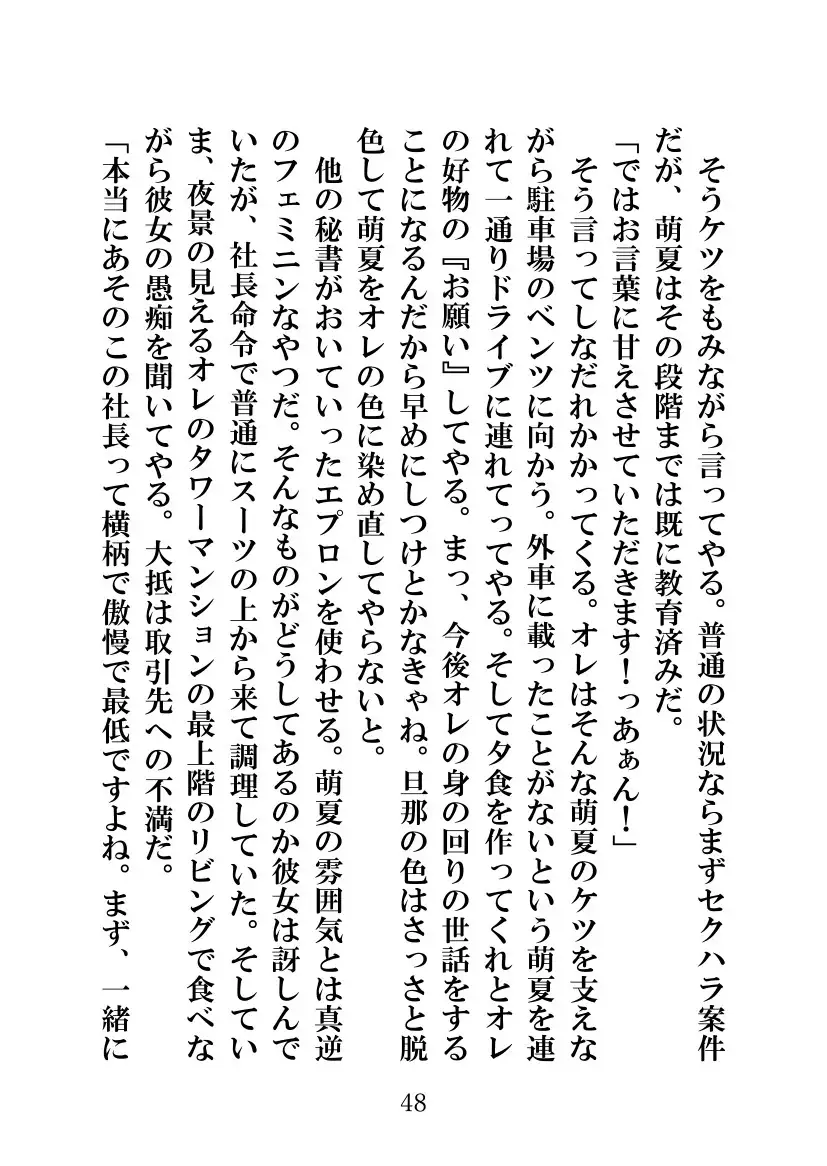 そうケツをもみながら言ってやる。普通の状況ならまずセクハラ案件
だが、萌夏はその段階までは既に教育済みだ。
「ではお言葉に甘えさせていただきます！っあぁん！」
　そう言ってしなだれかかってくる。オレはそんな萌夏のケツを支えな
がら駐車場のベンツに向かう。外車に載ったことがないという萌夏を連
れて一通りドライブに連れてってやる。そして夕食を作ってくれとオレ
の好物の『お願い』してやる。まっ、今後オレの身の回りの世話をする
ことになるんだから早めにしつけとかなきゃね。旦那の色はさっさと脱
色して萌夏をオレの色に染め直してやらないと。
　他の秘書がおいていったエプロンを使わせる。萌夏の雰囲気とは真逆
のフェミニンなやつだ。そんなものがどうしてあるのか彼女は訝しんで
いたが、社長命令で普通にスーツの上から来て調理していた。そしてい
ま、夜景の見えるオレのタワーマンションの最上階のリビングで食べな
がら彼女の愚痴を聞いてやる。大抵は取引先への不満だ。
「本当にあそのこの社長って横柄で傲慢で最低ですよね。まず、一緒に
48